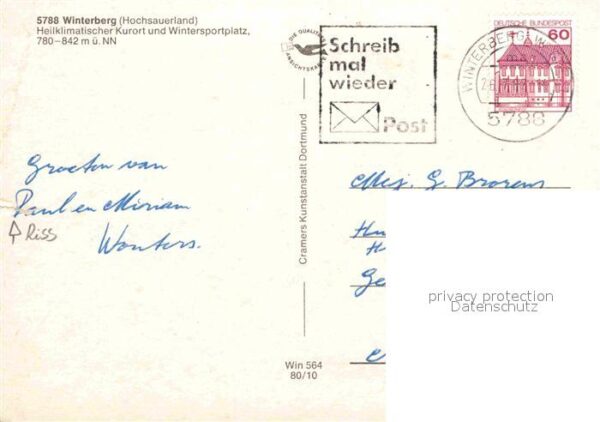 5788 Winterberg (Hochsauerland)
Heilklimatischer Kurort und Wintersportplatz,
780–842 m ü. NN
DIE QUALITÄTS
ANSICHTSKARTE
Schreib
mal
wieder
Post
DEUTSCHE BUNDESPOST
60
WINTERBERG, W
5788
Groeten van
Paul en Miriam
Wouters.
Riss
Cramers Kunstanstalt Dortmund
Mej. G. Brorens
privacy protection
Datenschutz
Win 564
80/10